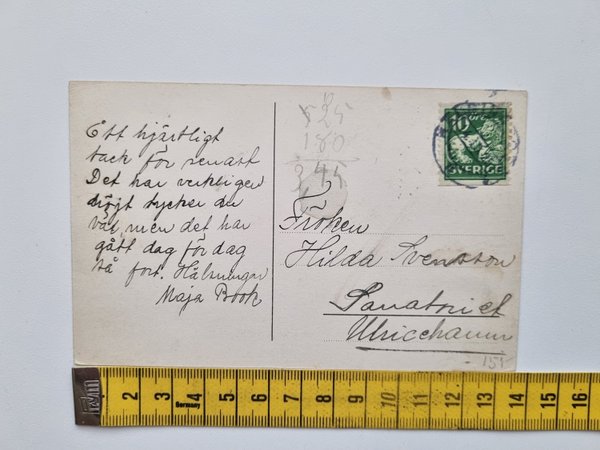 Ett hjärtligt
tack för senast
Det har verkligen
dröjt tycker du
väl, men det har
gått dag för dag
så fort. Hälsningar
Maja Book
525
180
345
10 ÖRE
SVERIGE
Fröken
Hilda Svensson
Sanatoriet
Ulricehamn
151
Germany
2 3 4 5 6 7 8 9 10 11 12 13 14 15 16